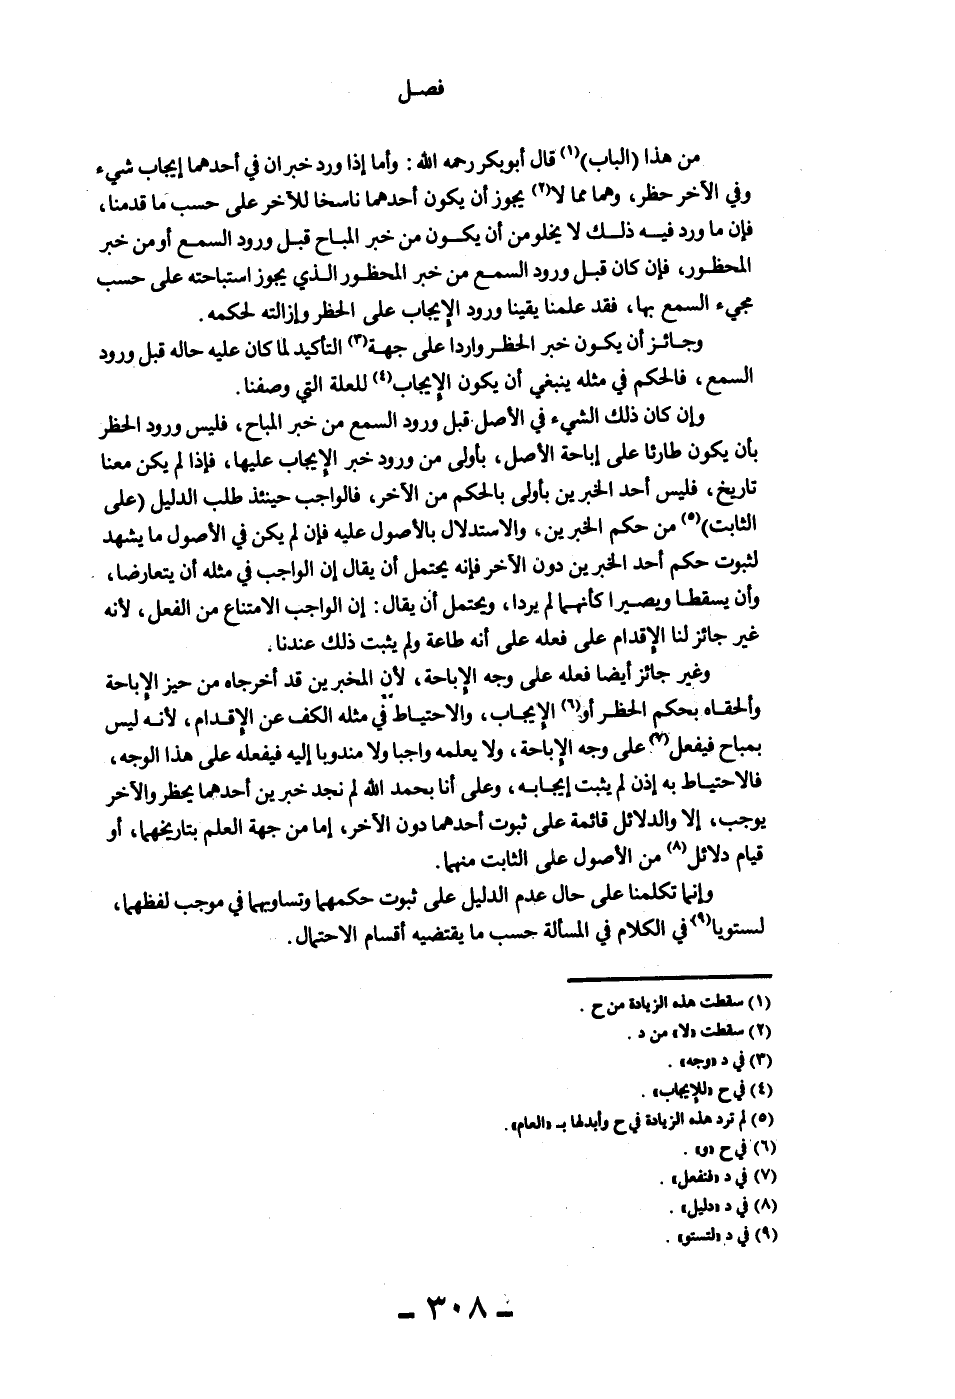 فصل
من هذا (الباب)(١) قال أبوبكر رحمه الله : وأما إذا ورد خبران في أحدهما إيجاب شيء
وفي الآخر حظر، وهما مما لا(٢) يجوز أن يكون أحدهما ناسخا للآخر على حسب ما قدمنا،
فإن ما ورد فيه ذلك لا يخلو من أن يكون من خبر المباح قبل ورود السمع أو من خبر
المحظور، فإن كان قبل ورود السمع من خبر المحظور الذي يجوز استباحته على حسب
مجيء السمع بها، فقد علمنا يقينا ورود الإيجاب على الحظر وإزالته لحكمه .
وجائز أن يكون خبر الحظر واردا على جهة(٣) التأكيد لما كان عليه حاله قبل ورود
السمع ، فالحكم في مثله ينبغي أن يكون الإيجاب(٤) للعلة التي وصفنا.
وإن كان ذلك الشيء في الأصل قبل ورود السمع من خبر المباح، فليس ورود الحظر
بأن يكون طارئا على إباحة الأصل، بأولى من ورود خبر الإيجاب عليها، فإذا لم يكن معنا
تاريخ، فليس أحد الخبرين بأولى بالحكم من الآخر، فالواجب حينئذ طلب الدليل (على
الثابت)(٥) من حكم الخبرين، والاستدلال بالأصول عليه فإن لم يكن في الأصول ما يشهد
لثبوت حكم أحد الخبرين دون الآخر فإنه يحتمل أن يقال إن الواجب في مثله أن يتعارضا،
وأن يسقطا ويصيرا كأنهما لم يردا، ويحتمل أن يقال : إن الواجب الامتناع من الفعل، لأنه
غير جائز لنا الإقدام على فعله على أنه طاعة ولم يثبت ذلك عندنا.
وغير جائز أيضا فعله على وجه الإباحة، لأن المخبرين قد أخرجاه من حيز الإباحة
وألحقاه بحكم الحظر أو(٦) الإيجاب، والاحتياط في مثله الكف عن الإقدام، لأنه ليس
بمباح فيفعل(٧) على وجه الإباحة، ولا يعلمه واجبا ولا مندوبا إليه فيفعله على هذا الوجه،
فالاحتياط به إذن لم يثبت إيجابه، وعلى أنا بحمد الله لم نجد خبرين أحدهما يحظر والآخر
يوجب، إلا والدلائل قائمة على ثبوت أحدهما دون الآخر، إما من جهة العلم بتاريخهما، أو
قيام دلائل(٨) من الأصول على الثابت منهما.
وإنما تكلمنا على حال عدم الدليل على ثبوت حكمهما وتساويهما في موجب لفظهما،
لستويا(٩) في الكلام في المسألة حسب ما يقتضيه أقسام الاحتمال.
(١) سقطت هذه الزيادة من ح .
(٢) سقطت «لا» من د .
(٣) في د «وجه» .
(٤) في ح «للإيجاب» .
(٥) لم ترد هذه الزيادة في ح وأبدلها بـ «العام».
(٦) في ح «و» .
(٧) في د «فنفعل» .
(٨) في د «دليل» .
(٩) في د «لتستو» .
ـ ٣٠٨ ـ